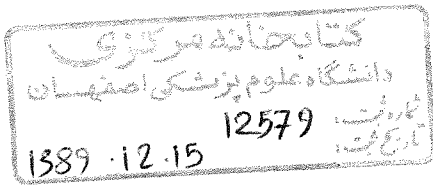 کتابخانه مرکزی
دانشگاه علوم پزشکی اصفهان
شماره ثبت: 12579
تاریخ ثبت: 1389.12.15